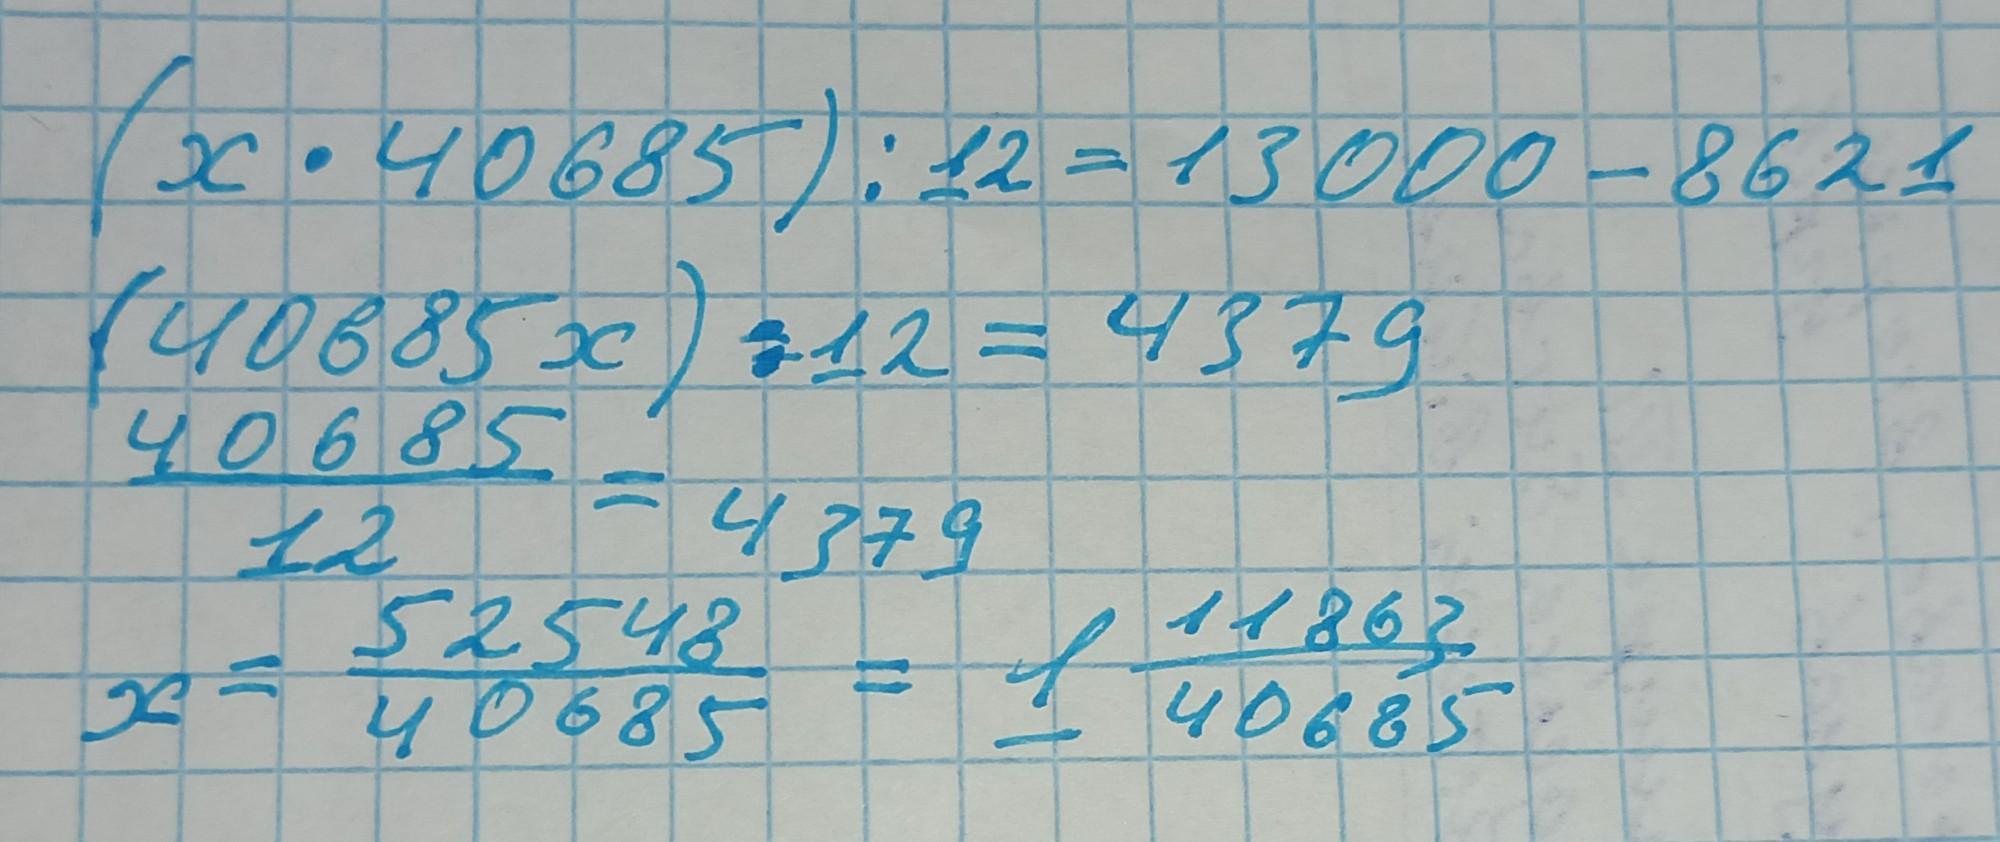 (x · 40685) : 12 = 13000 - 8621
(40685x) : 12 = 4379
40685/12 = 4379
x = 52548/40685 = 1 11863/40685